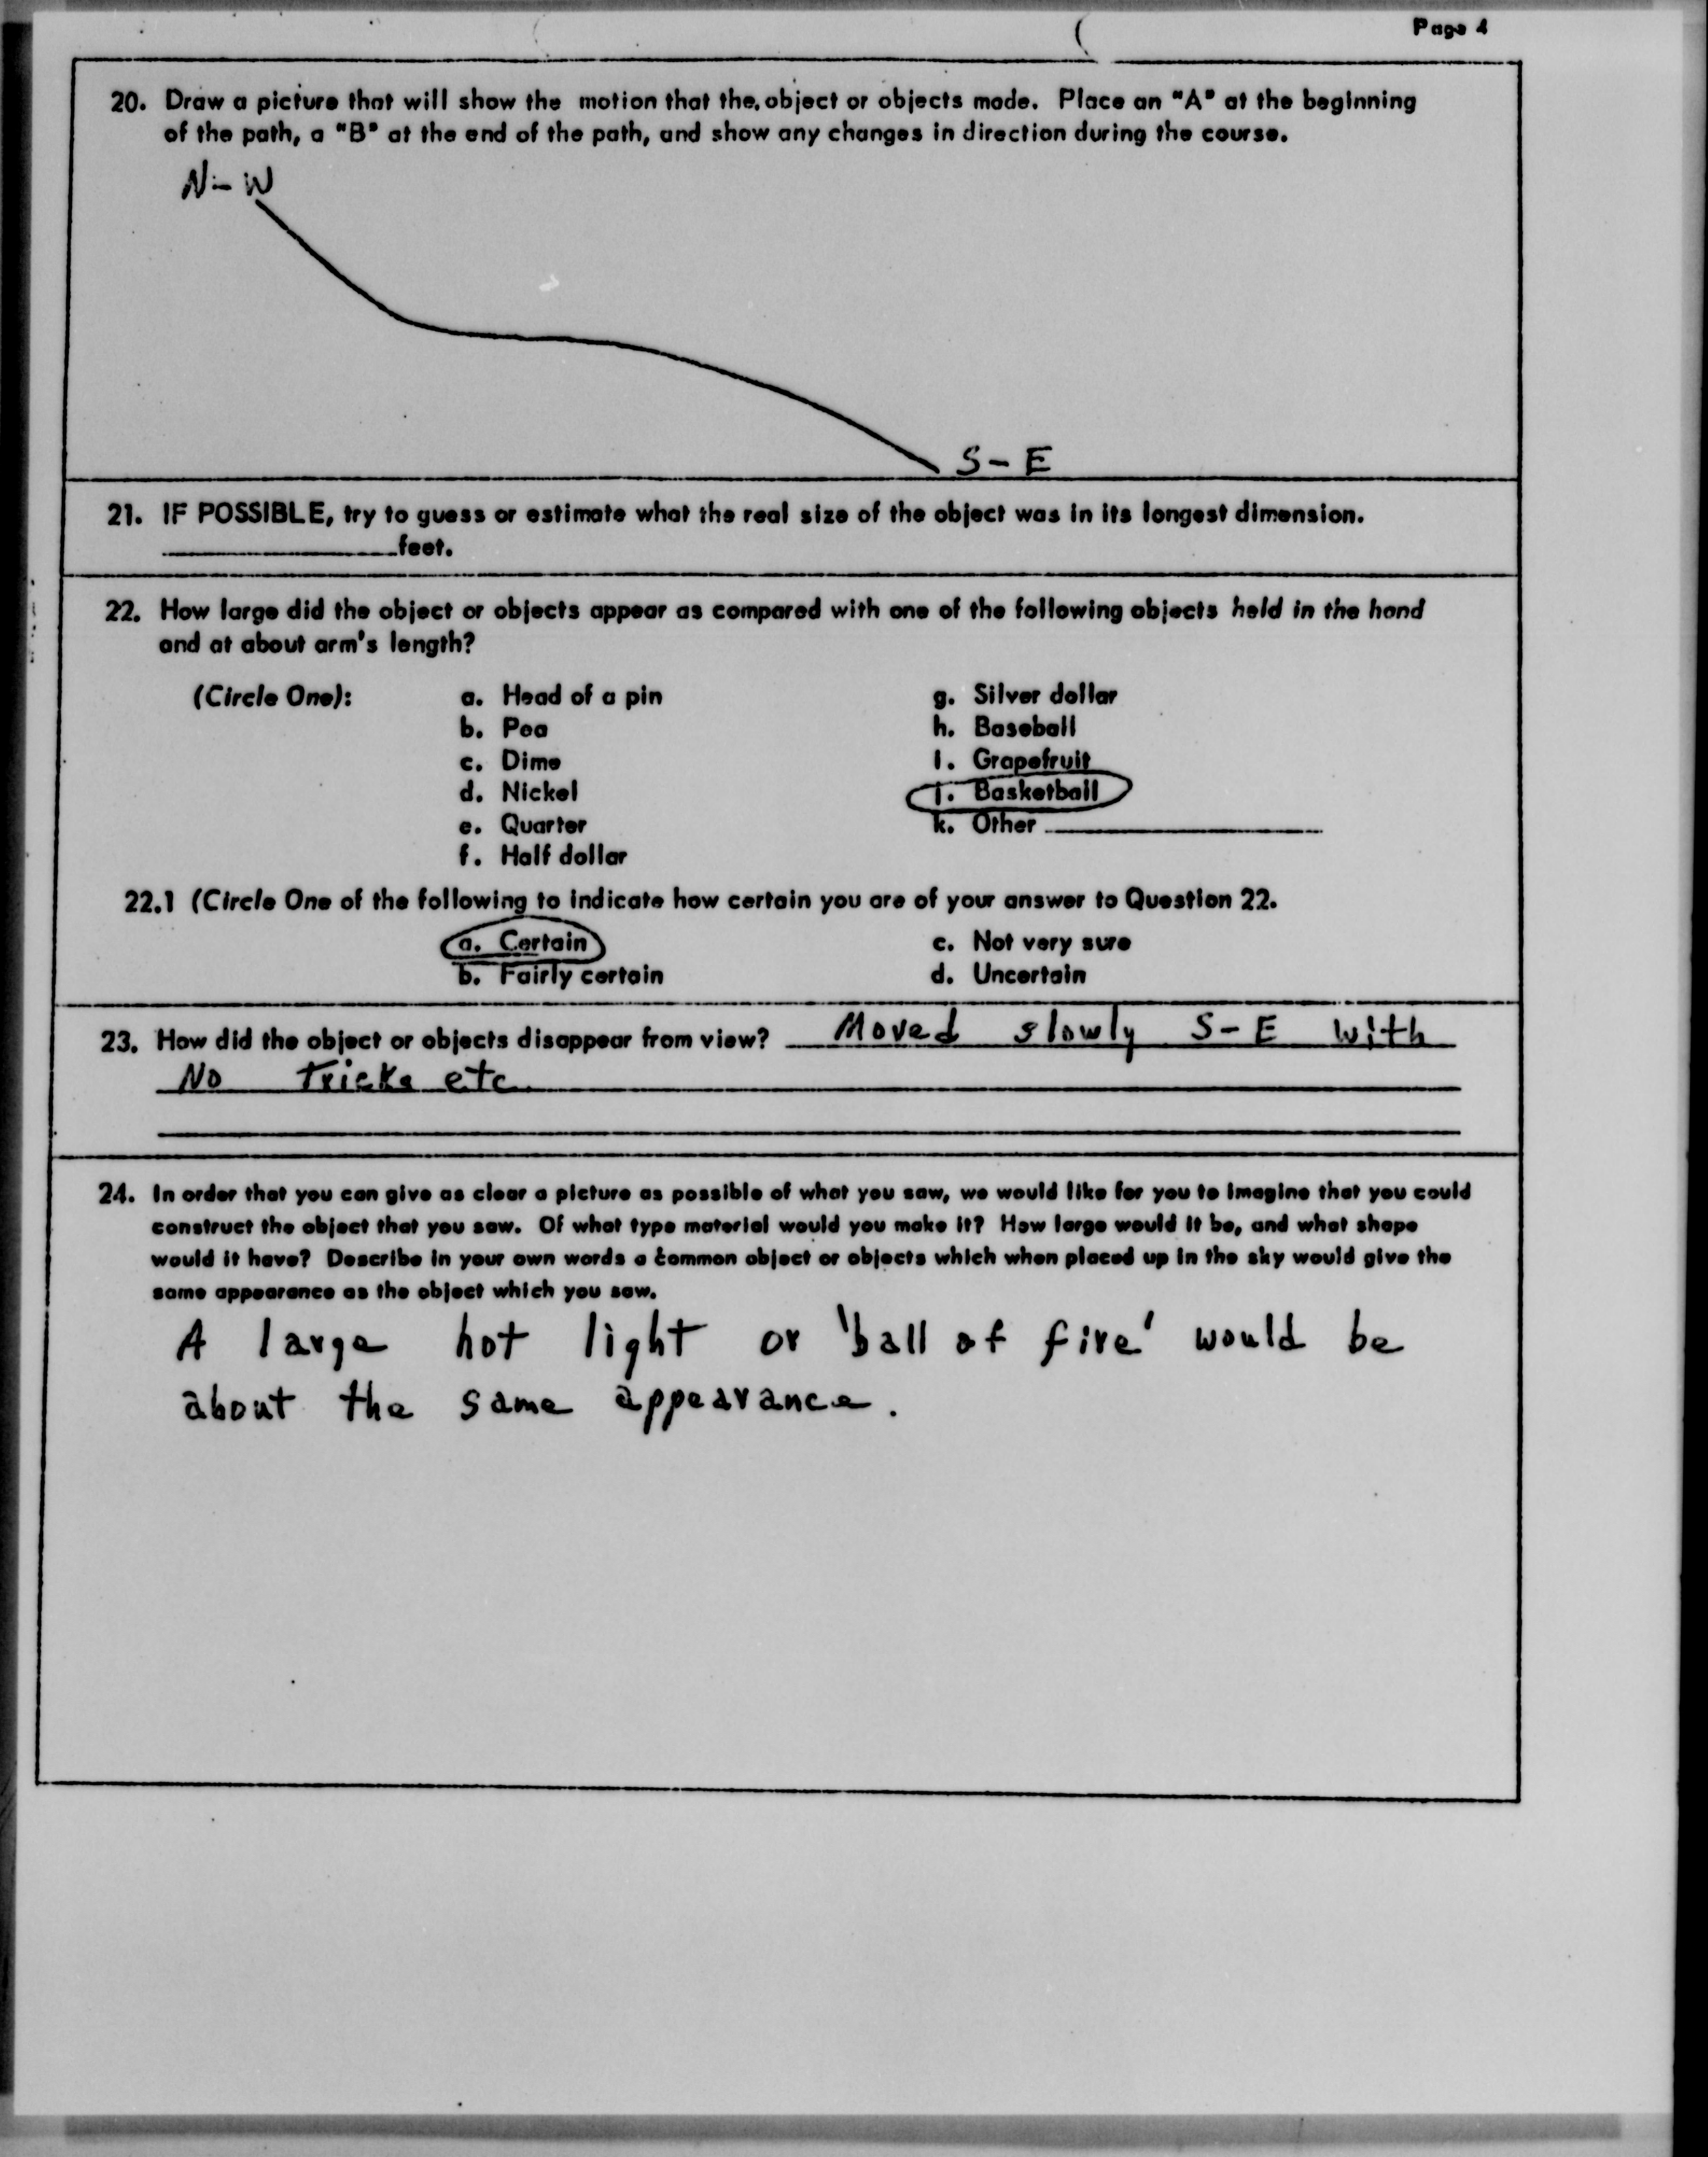 Page 4
20. Draw a picture that will show the motion that the object or objects made. Place an "A" at the beginning
of the path, a "B" at the end of the path, and show any changes in direction during the course.
N-W
S-E
21. IF POSSIBLE, try to guess or estimate what the real size of the object was in its longest dimension.
____________feet.
22. How large did the object or objects appear as compared with one of the following objects held in the hand
and at about arm's length?
(Circle One): a. Head of a pin g. Silver dollar
b. Pea h. Baseball
c. Dime i. Grapefruit
d. Nickel j. Basketball
e. Quarter k. Other ____________
f. Half dollar
22.1 (Circle One of the following to indicate how certain you are of your answer to Question 22.
a. Certain c. Not very sure
b. Fairly certain d. Uncertain
23. How did the object or objects disappear from view? Moved slowly S-E with
No Tricks etc.
24. In order that you can give as clear a picture as possible of what you saw, we would like for you to imagine that you could
construct the object that you saw. Of what type material would you make it? How large would it be, and what shape
would it have? Describe in your own words a common object or objects which when placed up in the sky would give the
same appearance as the object which you saw.
A large hot light or 'ball of fire' would be
about the same appearance.